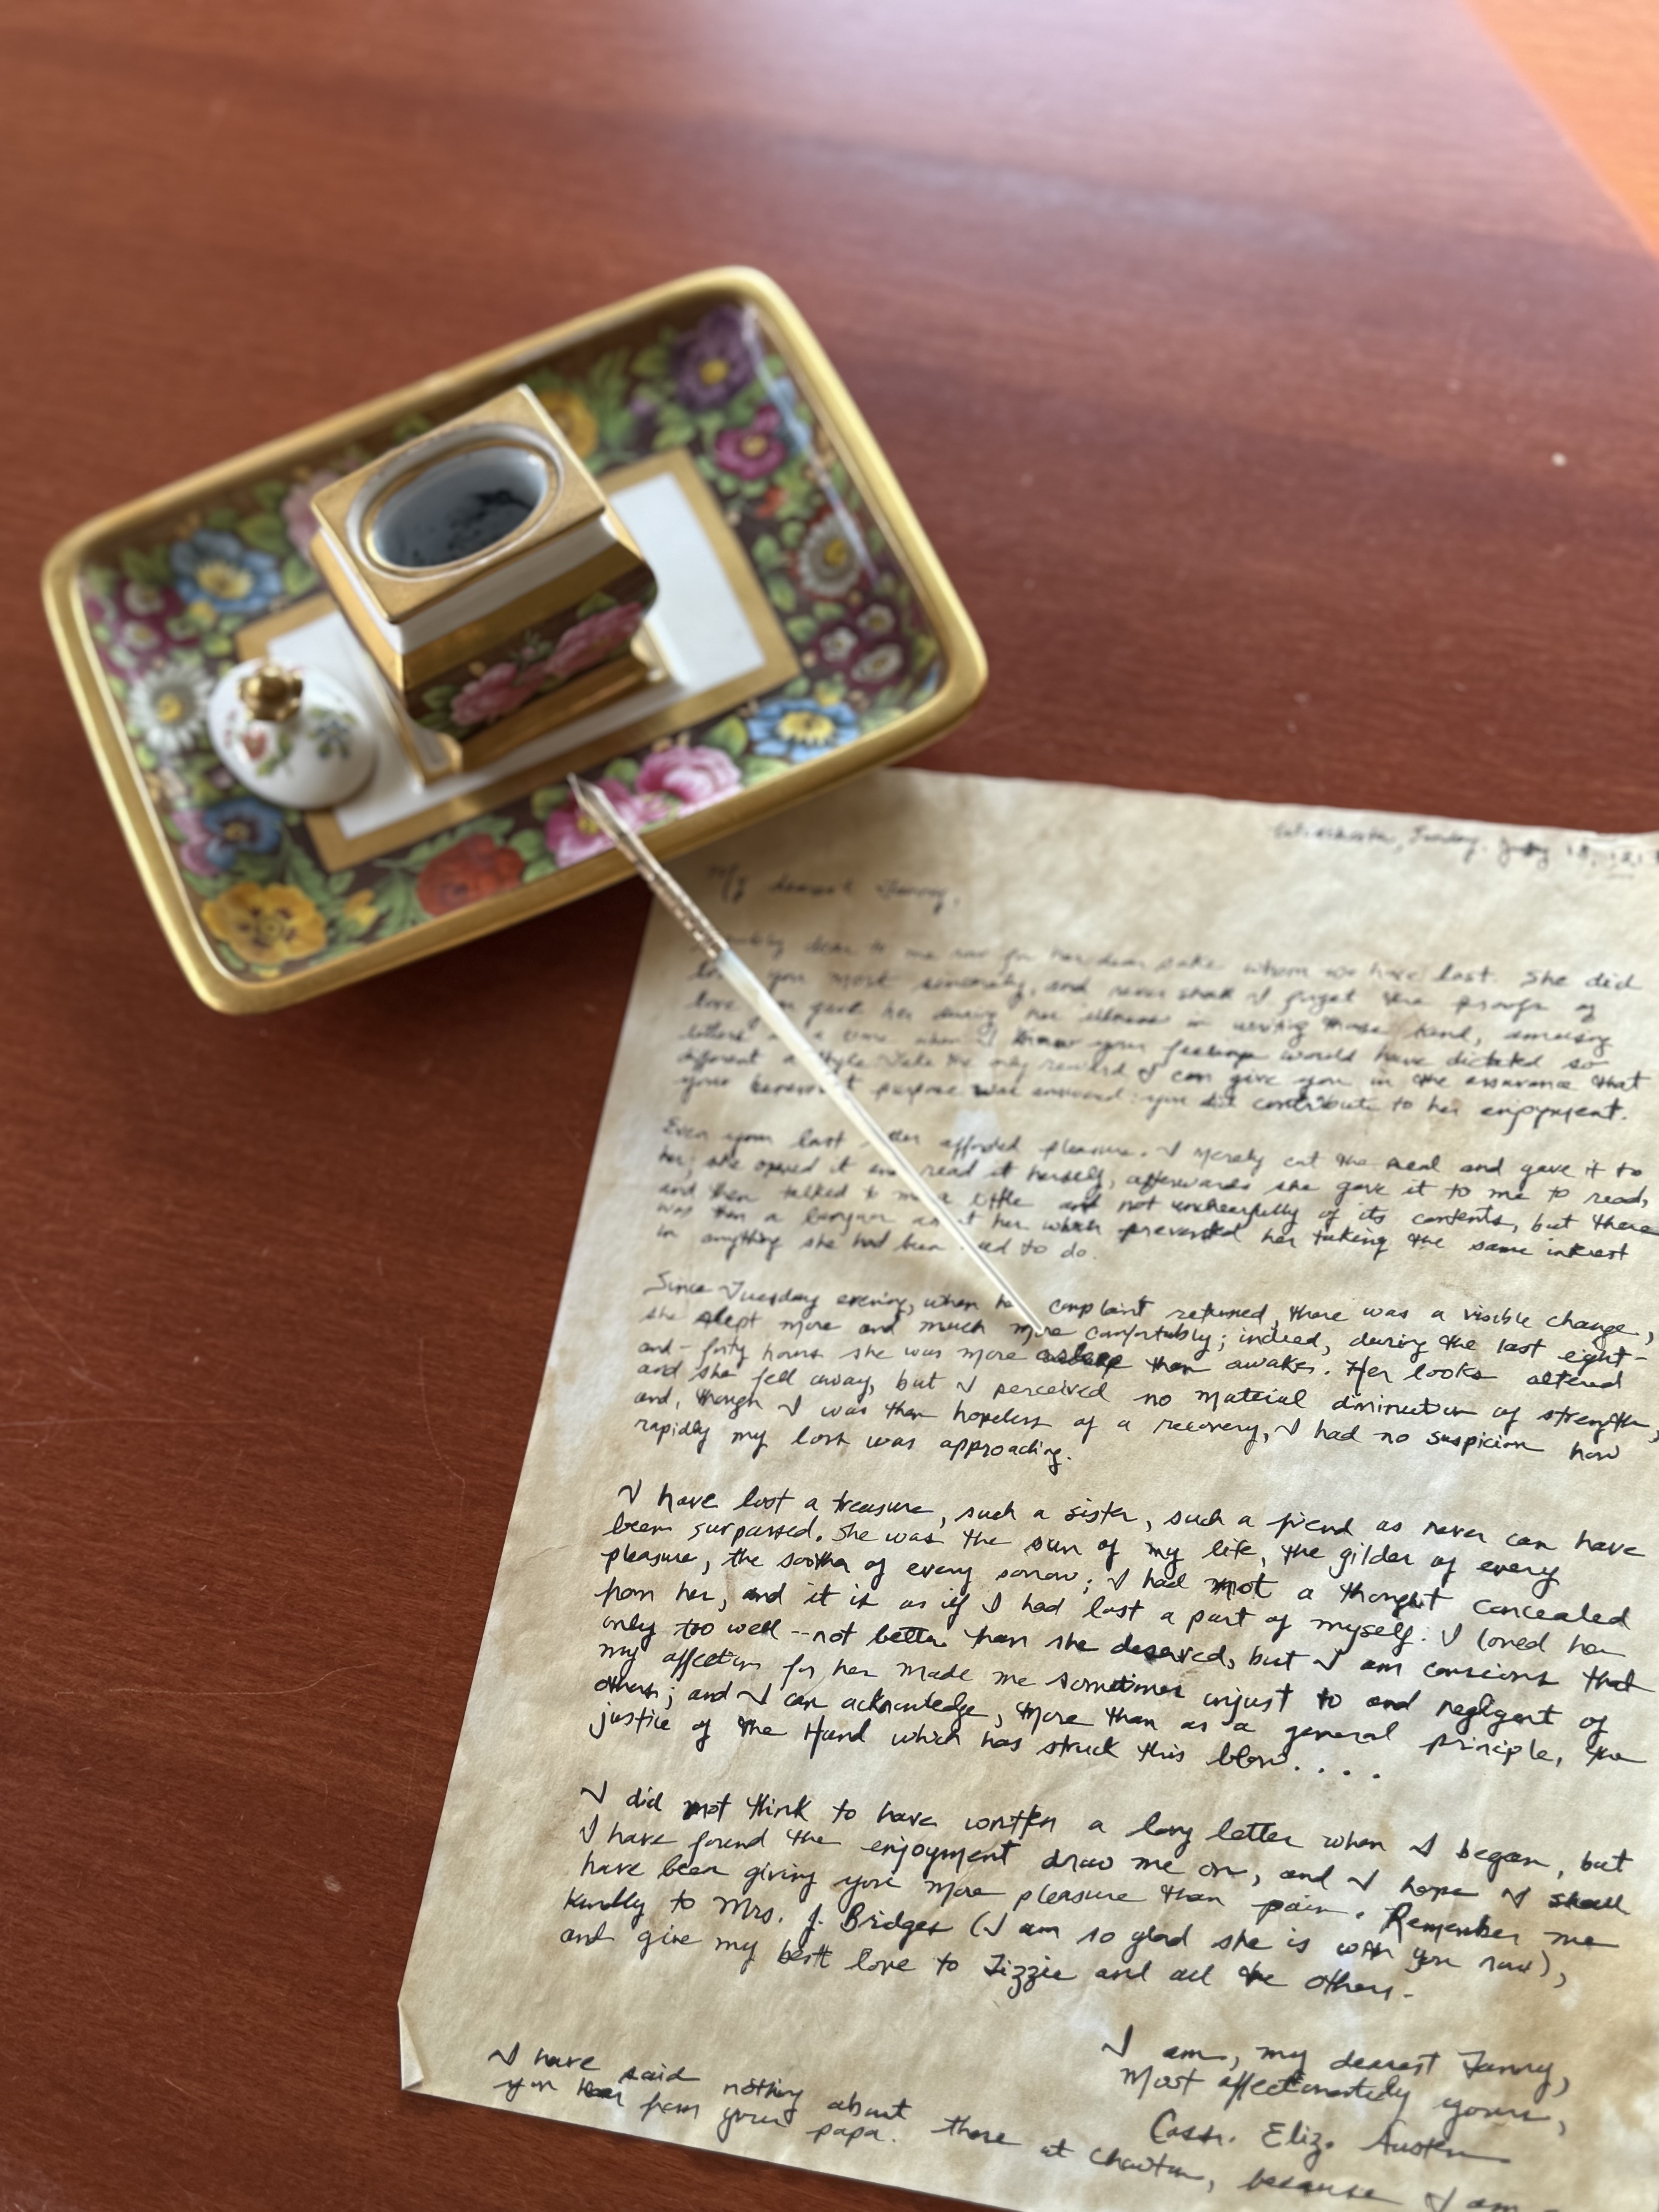 Winchester, Sunday, July 18, 181
My dearest Fanny,
doubly dear to me now for her dear sake whom we have lost. She did
love you most sincerely, and never shall I forget the proofs of
love you gave her during her illness in writing those kind, amusing
letters at a time when I know your feelings would have dictated so
different a style. Take the only reward I can give you in the assurance that
your benevolent purpose was answered: you did contribute to her enjoyment.
Even your last afforded pleasure. I merely cut the seal and gave it to
her; she opened it and read it herself, afterwards she gave it to me to read,
and then talked to me a little and not uncheerfully of its contents, but there
was then a languor about her which prevented her taking the same interest
in anything she had been used to do.
Since Tuesday evening, when her complaint returned, there was a visible change,
she slept more and much more comfortably; indeed, during the last eight-
and-forty hours she was more asleep than awake. Her looks altered
and she fell away, but I perceived no material diminution of strength,
and, though I was then hopeless of a recovery, I had no suspicion how
rapidly my loss was approaching.
I have lost a treasure, such a sister, such a friend as never can have
been surpassed. She was the sun of my life, the gilder of every
pleasure, the soother of every sorrow; I had not a thought concealed
from her, and it is as if I had lost a part of myself. I loved her
only too well -- not better than she deserved, but I am conscious that
my affection for her made me sometimes unjust to and negligent of
others; and I can acknowledge, more than as a general principle, the
justice of the Hand which has struck this blow....
I did not think to have written a long letter when I began, but
I have found the enjoyment draw me on, and I hope I shall
have been giving you more pleasure than pain. Remember me
kindly to Mrs. J. Bridges (I am so glad she is with you now),
and give my best love to Lizzie and all the others.
I am, my dearest Fanny,
Most affectionately yours,
Cass. Eliz. Austen
I have said nothing about those at Chawton, because I am
you hear from your papa.